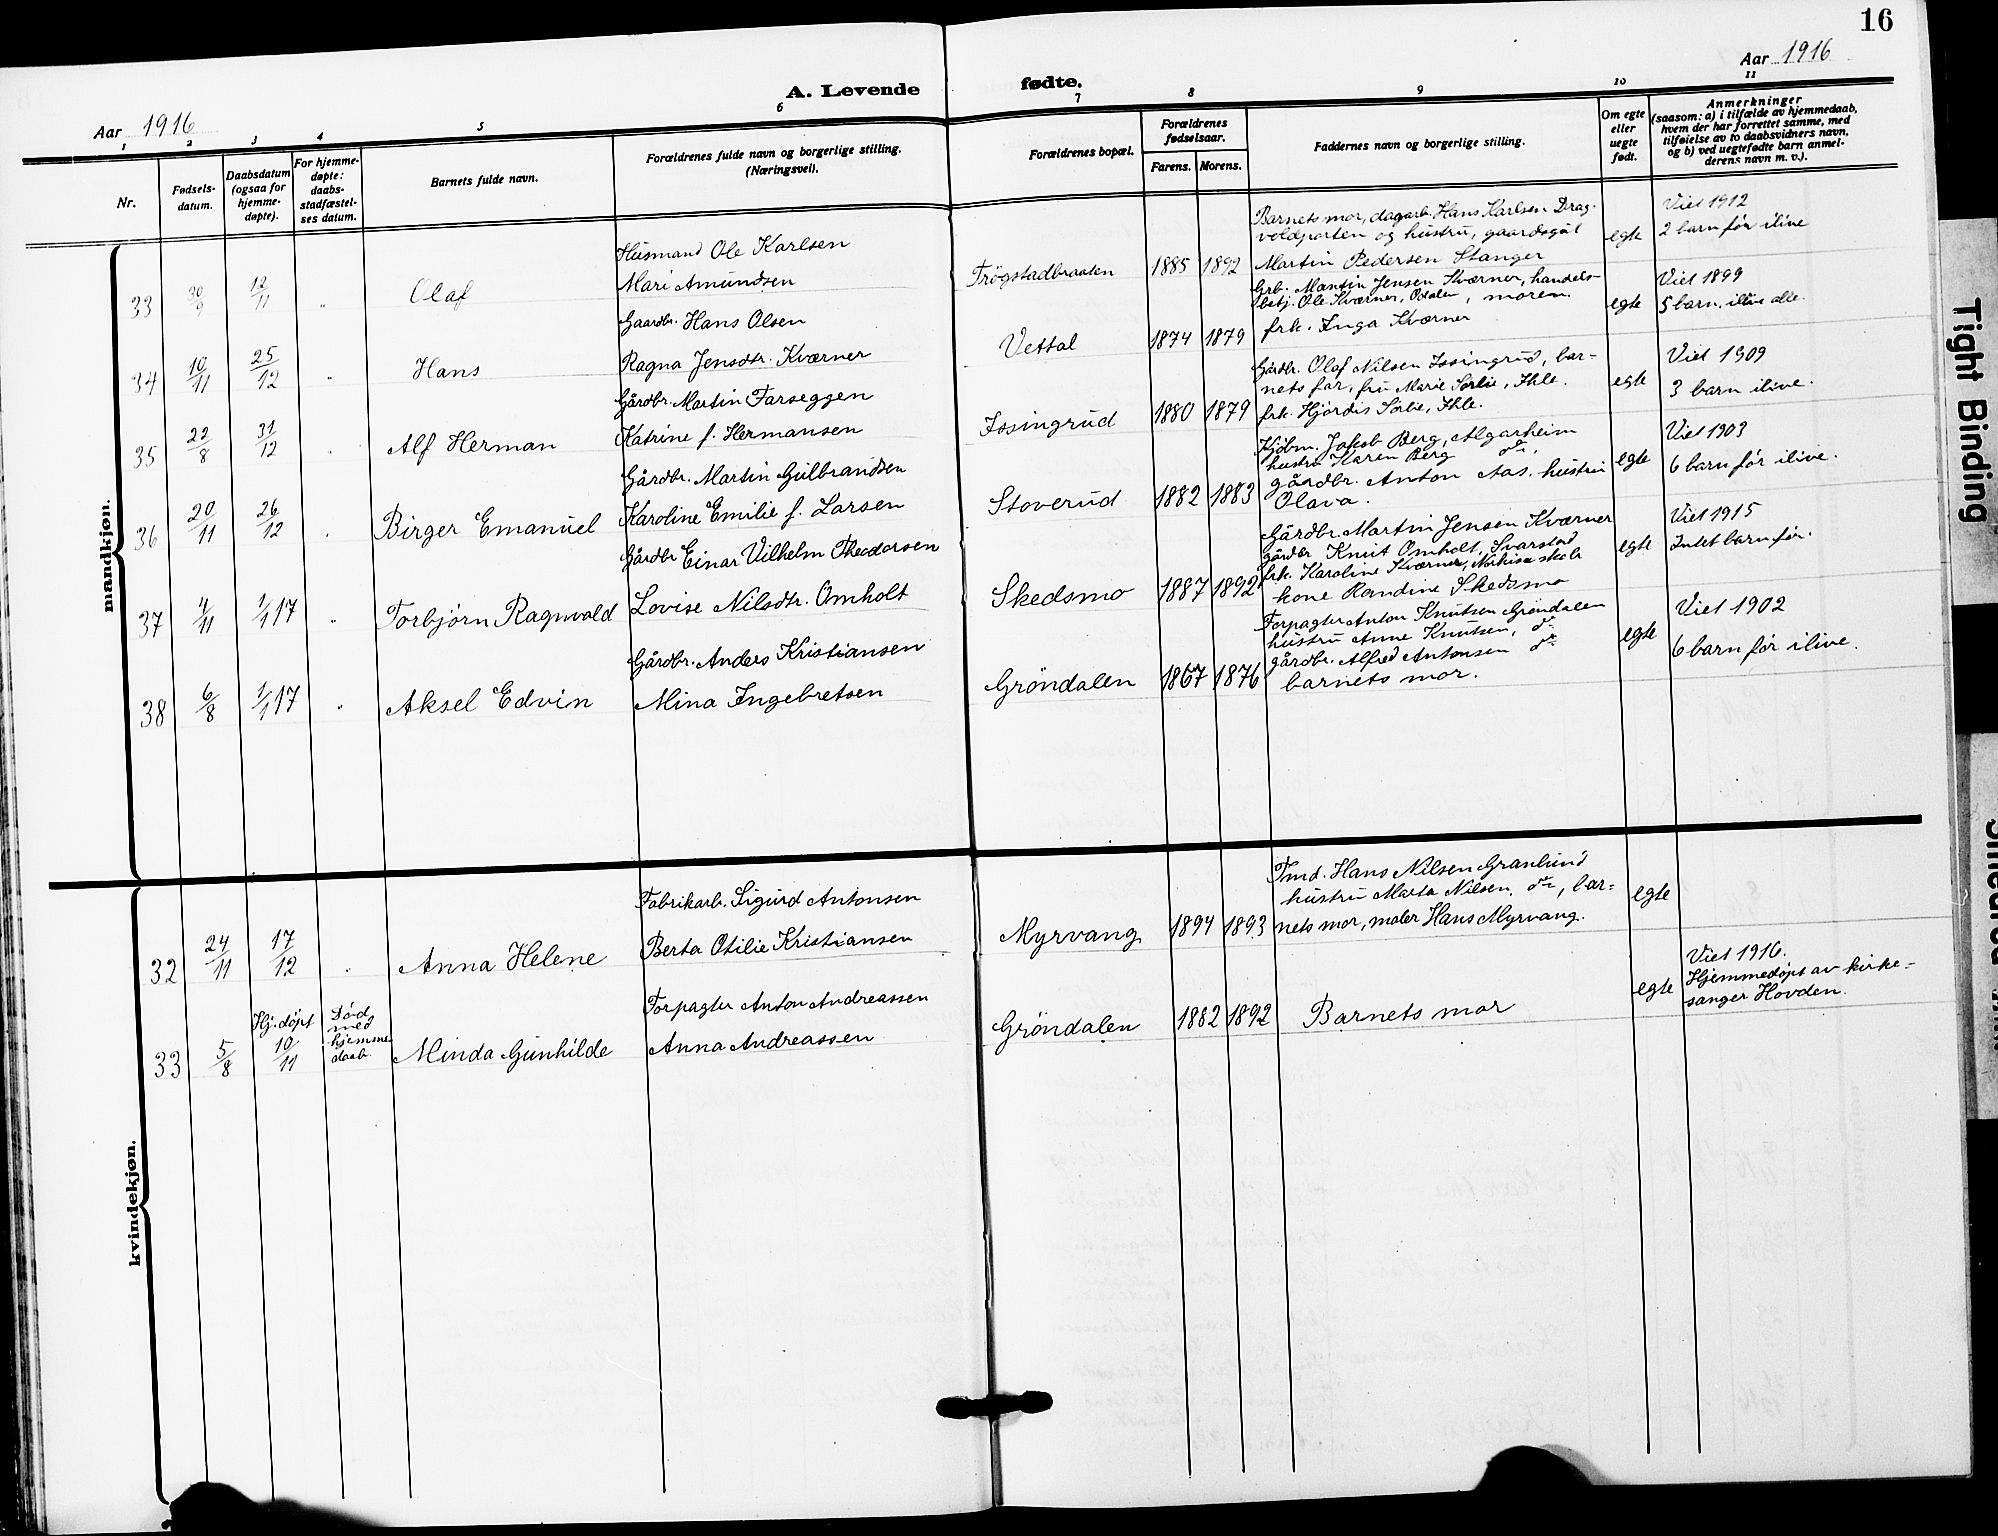 16
Aar 1916
Aar 1916
A. Levende fødte.
1 2 3 4 5 6 7 8 9 10 11
Nr.
Fødsels-
datum.
Daabsdatum
(ogsaa for
hjemme-
døpte).
For hjemme-
døpte:
daabs-
stadfæstel-
ses datum.
Barnets fulde navn.
Forældrenes fulde navn og borgerlige stilling.
(Næringsvei).
Forældrenes bopæl.
Forældrenes
fødselsaar.
Farens. Morens.
Faddernes navn og borgerlige stilling.
Om egte
eller
uegte
født.
Anmerkninger
(saasom: a) i tilfælde av hjemmedaab,
hvem der har forrettet samme, med
tilføielse av to daabsvidners navn,
og b) ved uegtefødte barn anmel-
derens navn m. v.).
mandkjøn.
33 30/9 12/11 " Olaf
Husmand Ole Karlsen
Mari Amundsen
Trögstadbraaten 1885 1892
Barnets mor, dagarb. Hans Karlsen Drag-
voldporten og hustru, gaardsgut
Martin Pedersen Stanger
egte
Viet 1912
2 barn før ilive
34 10/11 25/12 " Hans
Gaardbr. Hans Olsen
Ragna Jensdtr. Kværner
Vettal 1874 1879
Grb. Martin Jensen Kværner, handels-
betj. Ole Kværner, Odalen, moren.
frk. Inga Kværner
egte
Viet 1899
5 barn, ilive alle.
35 22/8 31/12 " Alf Herman
Gårdbr. Martin Farseggen
Katrine f. Hermansen
Issingrud 1880 1879
Gårdbr. Olaf Nilsen Issingrud, bar-
nets far, fru Marie Sørlie, Ihle.
frk. Hjördis Sørlie, Ihle.
egte
Viet 1909
3 barn ilive.
36 20/11 26/12 " Birger Emanuel
Gårdbr. Martin Gulbrandsen
Karoline Emilie f. Larsen
Stoverud 1882 1883
Kjöbm. Jakob Berg, Algarheim
hustru Karen Berg do,
gårdbr. Anton Aas. hustru
Olava.
egte
Viet 1903
6 barn før ilive.
37 4/11 1/1 17 " Torbjørn Ragnvald
Gårdbr Einar Vilhelm Theodorsen
Lovise Nilsdtr. Omholt
Skedsmo 1887 1892
Gårdbr. Martin Jensen Kværner
gårdbr Knut Omholt, Svarstad
frk. Karoline Kværner,
kone Randine Skedsmo
egte
Viet 1915
Intet barn før.
38 6/8 1/1 17 " Aksel Edvin
Gårdbr. Anders Kristiansen
Mina Ingebretsen
Gröndalen 1867 1876
Forpagter Anton Knutsen Gröndalen
hustru Anne Knutsen, do
gårdbr. Alfred Antonsen do
barnets mor.
egte
Viet 1902
6 barn før ilive.
kvindekjøn.
32 24/11 17/12 " Anna Helene
Fabrikarb. Sigurd Antonsen
Berta Otilie Kristiansen
Myrvang 1894 1893
Tmd. Hans Nilsen Granlund
hustru Marta Nilsen, do, bar-
nets mor, maler Hans Myrvang.
egte
33 5/8 Hj. døpt 10/11
Död
med
hjemme
daab
Minda Gunhilde
Forpagter Anton Andreassen
Anna Andreassen
Gröndalen 1882 1892 Barnets mor
egte
Viet 1916.
Hjemmedøpt av kirke-
sanger Hovden.
Tight Binding